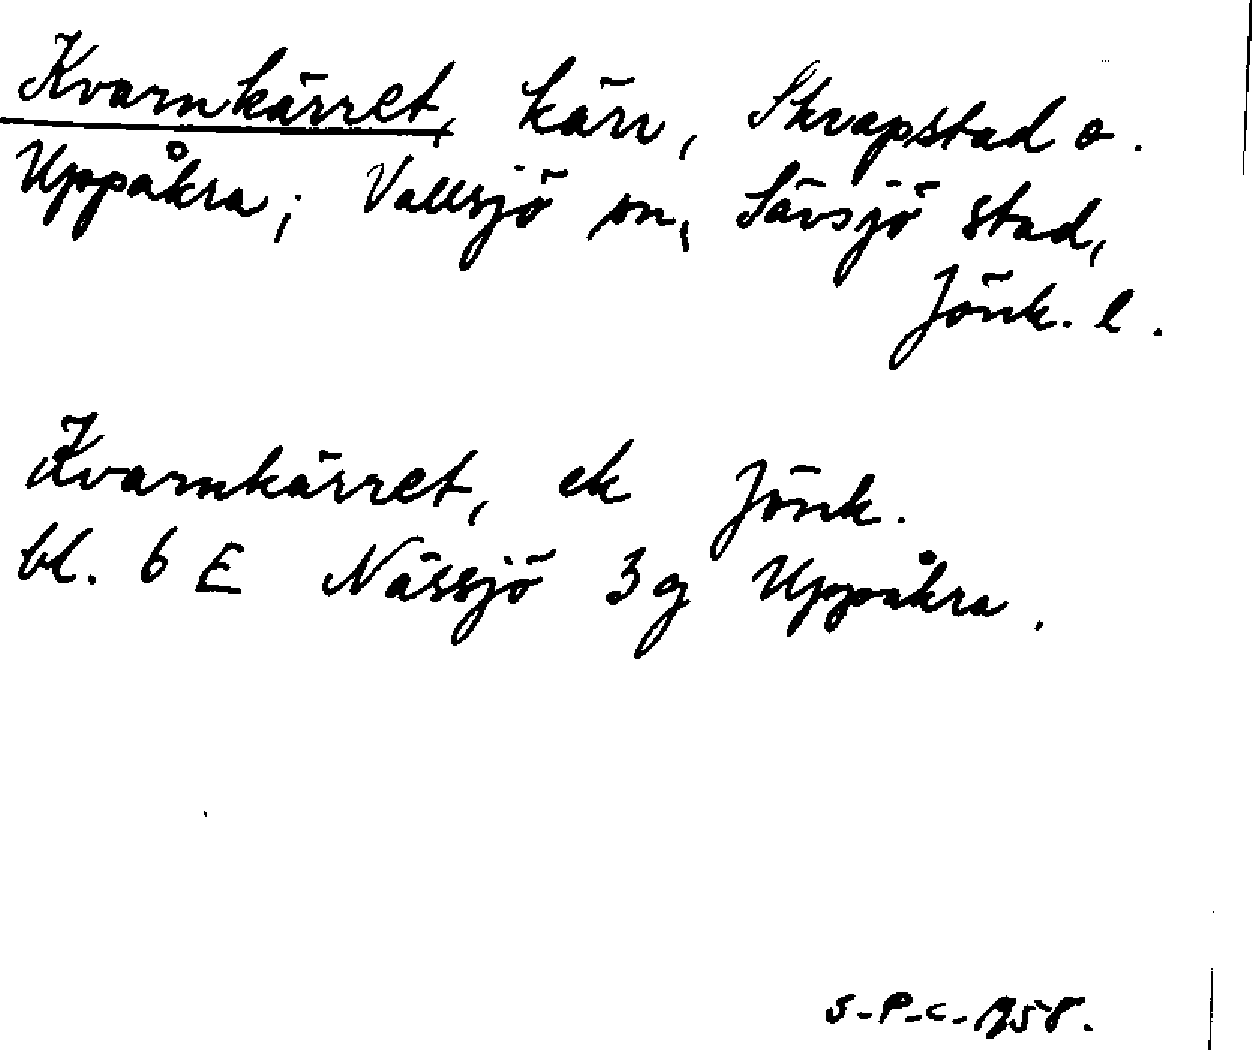 Kvarnkärret, kärr, Skrapstad o.
Uppåkra; Vallsjö sn, Sävsjö stad,
Jönk. l.
Kvarnkärret, ek Jönk.
bl. 6 E Nässjö 3 g Uppåkra.
S-P-C-1958.